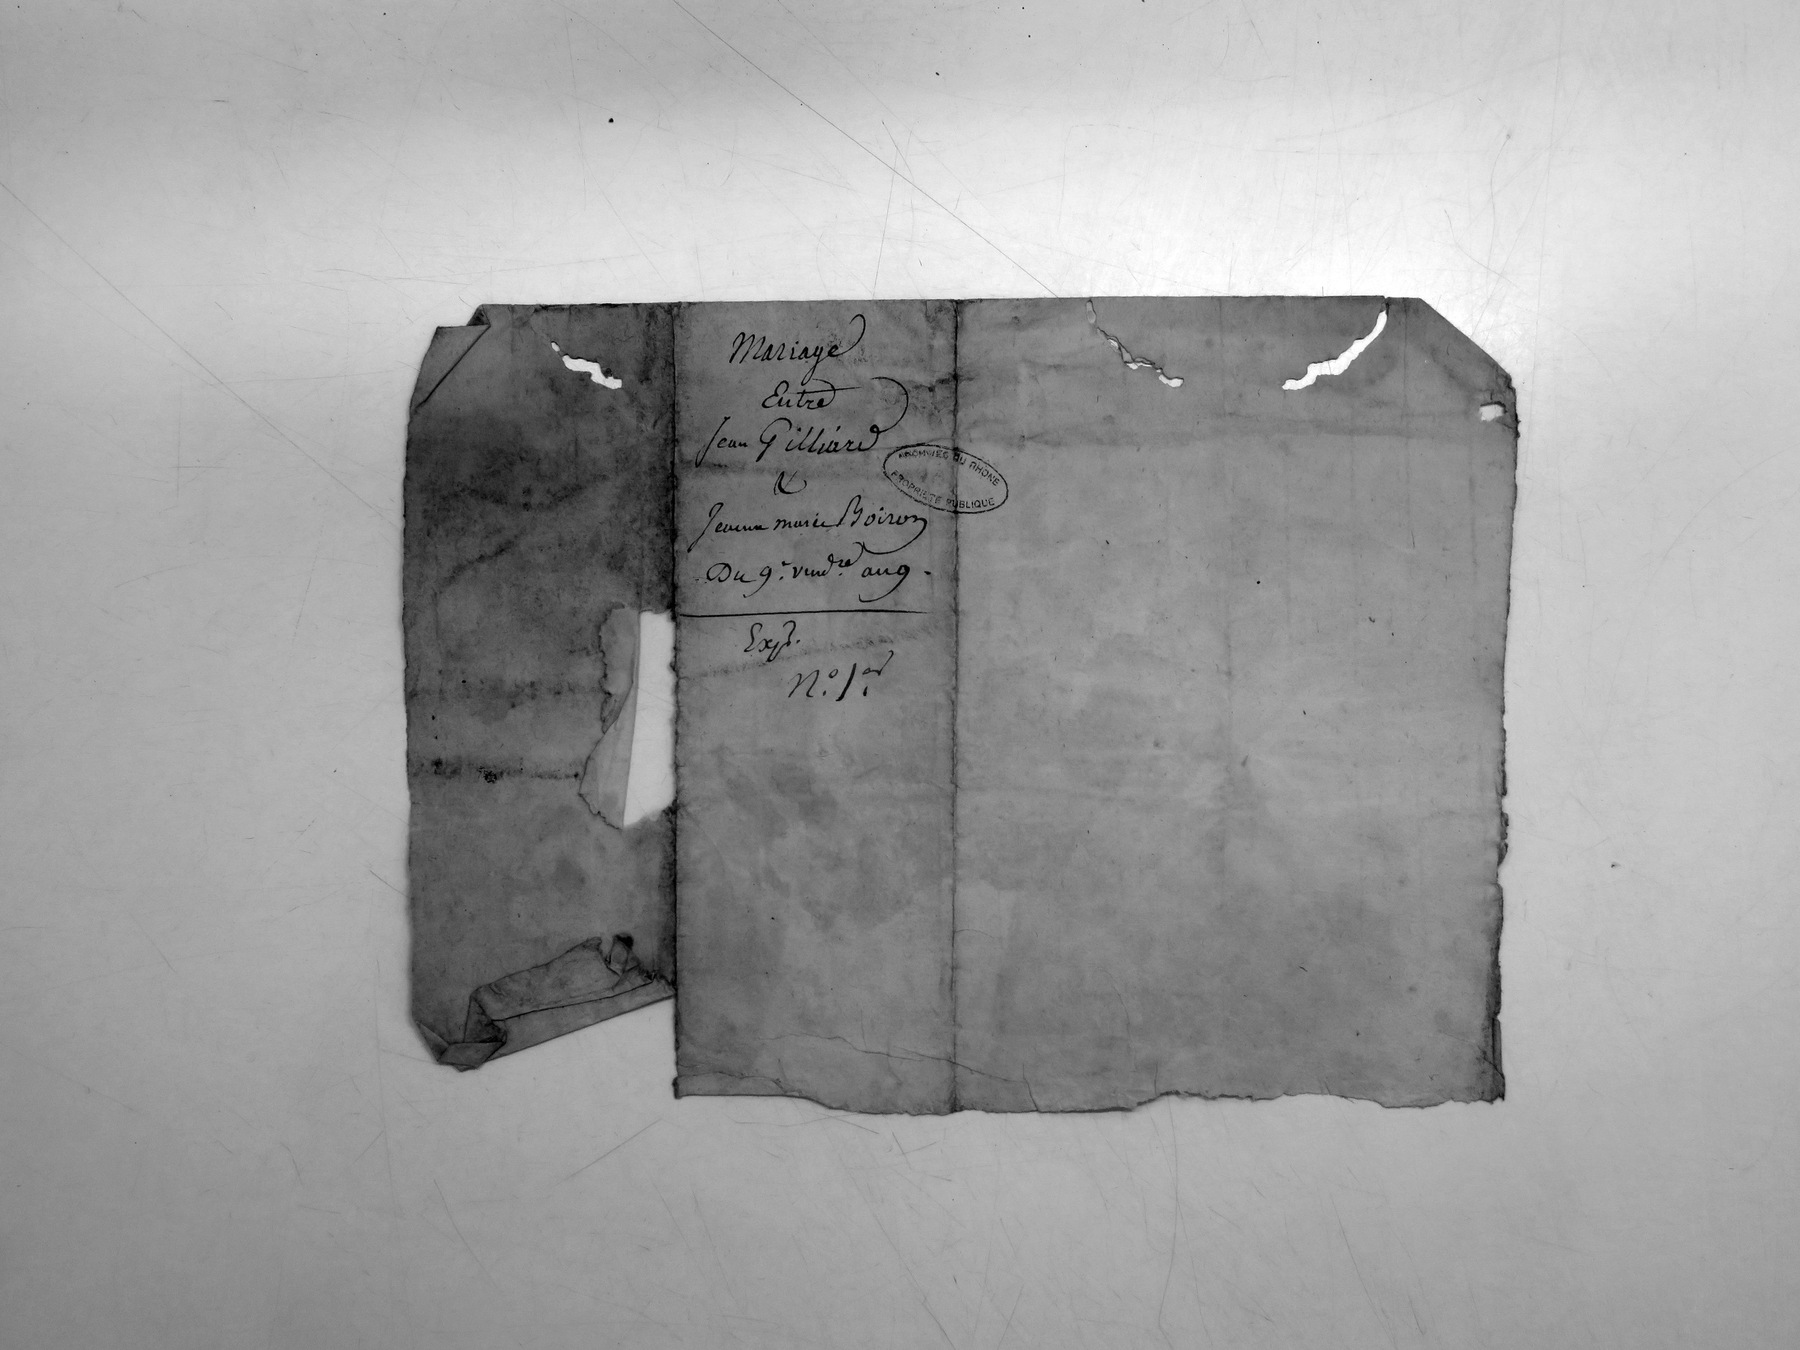 Mariage
Entre
Jean Gilliard
&
Jeanne marie Boiron
Du 9.e vendre. an 9.
Exp.
N.o 1.er
ARCHIVES DU RHONE
PROPRIÉTÉ PUBLIQUE